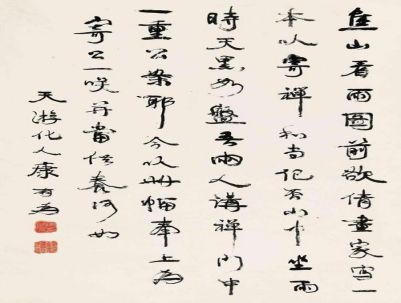 焦山看雨图前欲倩画家写一
本以寄禅和尚记否小小坐雨
时天黑如盘吾两人讲禅门中
一重公案耶今以此幅奉上为
寄公一咲并当供养何如
天游化人康有为